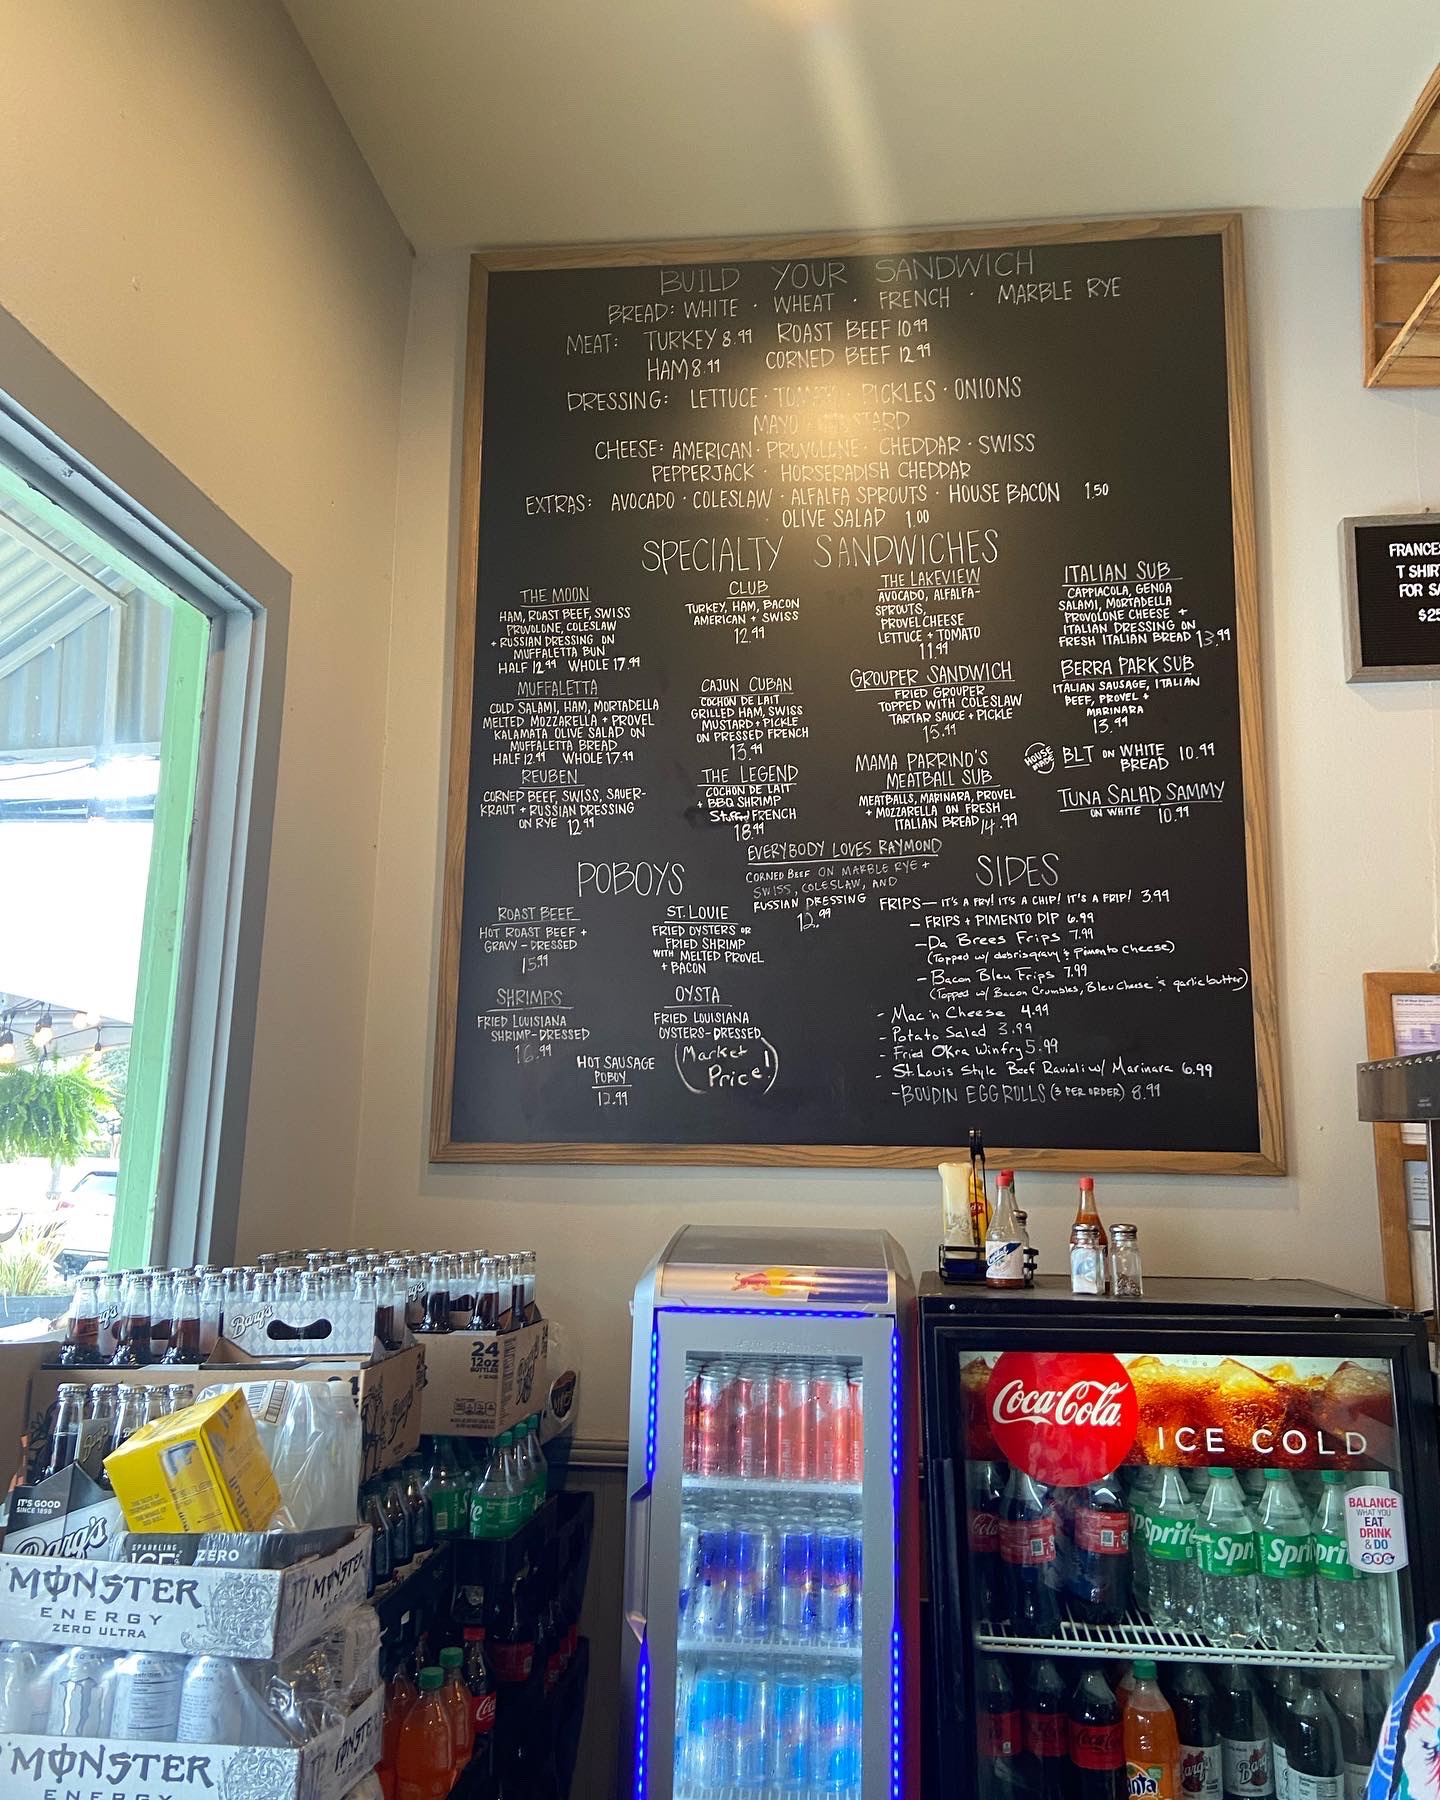 BUILD YOUR SANDWICH
BREAD: WHITE · WHEAT · FRENCH · MARBLE RYE
MEAT: TURKEY 8.99 ROAST BEEF 10.99
HAM 8.99 CORNED BEEF 12.99
DRESSING: LETTUCE · TOMATO · PICKLES · ONIONS
MAYO MUSTARD
CHEESE: AMERICAN · PROVOLONE · CHEDDAR · SWISS
PEPPERJACK · HORSERADISH CHEDDAR
EXTRAS: AVOCADO · COLESLAW · ALFALFA SPROUTS · HOUSE BACON 1.50
· OLIVE SALAD 1.00
SPECIALTY SANDWICHES
THE MOON
HAM, ROAST BEEF, SWISS
PROVOLONE, COLESLAW
+ RUSSIAN DRESSING ON
MUFFALETTA BUN
HALF 12.99 WHOLE 17.99
MUFFALETTA
COLD SALAMI, HAM, MORTADELLA
MELTED MOZZARELLA + PROVEL
KALAMATA OLIVE SALAD ON
MUFFALETTA BREAD
HALF 12.99 WHOLE 17.99
REUBEN
CORNED BEEF, SWISS, SAUER-
KRAUT + RUSSIAN DRESSING
ON RYE 12.99
CLUB
TURKEY, HAM, BACON
AMERICAN + SWISS
12.99
CAJUN CUBAN
COCHON DE LAIT
GRILLED HAM, SWISS
MUSTARD + PICKLE
ON PRESSED FRENCH
13.99
THE LEGEND
COCHON DE LAIT
+ BBQ SHRIMP
Stuffed FRENCH
18.99
THE LAKEVIEW
AVOCADO, ALFALFA-
SPROUTS,
PROVEL CHEESE
LETTUCE + TOMATO
11.99
GROUPER SANDWICH
FRIED GROUPER
TOPPED WITH COLESLAW
TARTAR SAUCE + PICKLE
15.99
MAMA PARRINO'S
MEATBALL SUB
MEATBALLS, MARINARA, PROVEL
+ MOZZARELLA ON FRESH
ITALIAN BREAD 14.99
EVERYBODY LOVES RAYMOND
CORNED BEEF ON MARBLE RYE +
SWISS, COLESLAW, AND
RUSSIAN DRESSING
12.99
ITALIAN SUB
CAPPIACOLA, GENOA
SALAMI, MORTADELLA
PROVOLONE CHEESE +
ITALIAN DRESSING ON
FRESH ITALIAN BREAD 13.99
BERRA PARK SUB
ITALIAN SAUSAGE, ITALIAN
BEEF, PROVEL +
MARINARA
13.99
HOUSE MADE
BLT ON WHITE BREAD 10.99
TUNA SALAD SAMMY
ON WHITE 10.99
POBOYS
ROAST BEEF
HOT ROAST BEEF +
GRAVY - DRESSED
15.99
SHRIMPS
FRIED LOUISIANA
SHRIMP - DRESSED
16.99
ST. LOUIE
FRIED OYSTERS OR
FRIED SHRIMP
WITH MELTED PROVEL
+ BACON
OYSTA
FRIED LOUISIANA
OYSTERS - DRESSED
(Market
Price!)
HOT SAUSAGE
POBOY
12.99
SIDES
FRIPS — IT'S A FRY! IT'S A CHIP! IT'S A FRIP! 3.99
- FRIPS + PIMENTO DIP 6.99
- Da Brees Frips 7.99
(Topped w/ debris gravy & Pimento Cheese)
- Bacon Bleu Frips 7.99
(Topped w/ Bacon Crumbles, Bleu Cheese & garlic butter)
- Mac 'n Cheese 4.99
- Potato Salad 3.99
- Fried OKra Winfry 5.99
- St. Louis Style Beef Ravioli w/ Marinara 6.99
- BOUDIN EGG ROLLS (3 PER ORDER) 8.99
FRANCES
T SHIR
FOR SA
$25
Barq's
Barq's
24
12oz
BOTTLES
IT'S GOOD
SINCE 1898
Barq's
SPARKLING
ICE
ZERO
MONSTER
ENERGY
ZERO ULTRA
MONSTER
ENERGY
Red Bull
Coca-Cola
ICE COLD
BALANCE
WHAT YOU
EAT
DRINK
& DO
Sprite
Sprite
Sprite
Sprite
Fanta
Barq's
Barq's